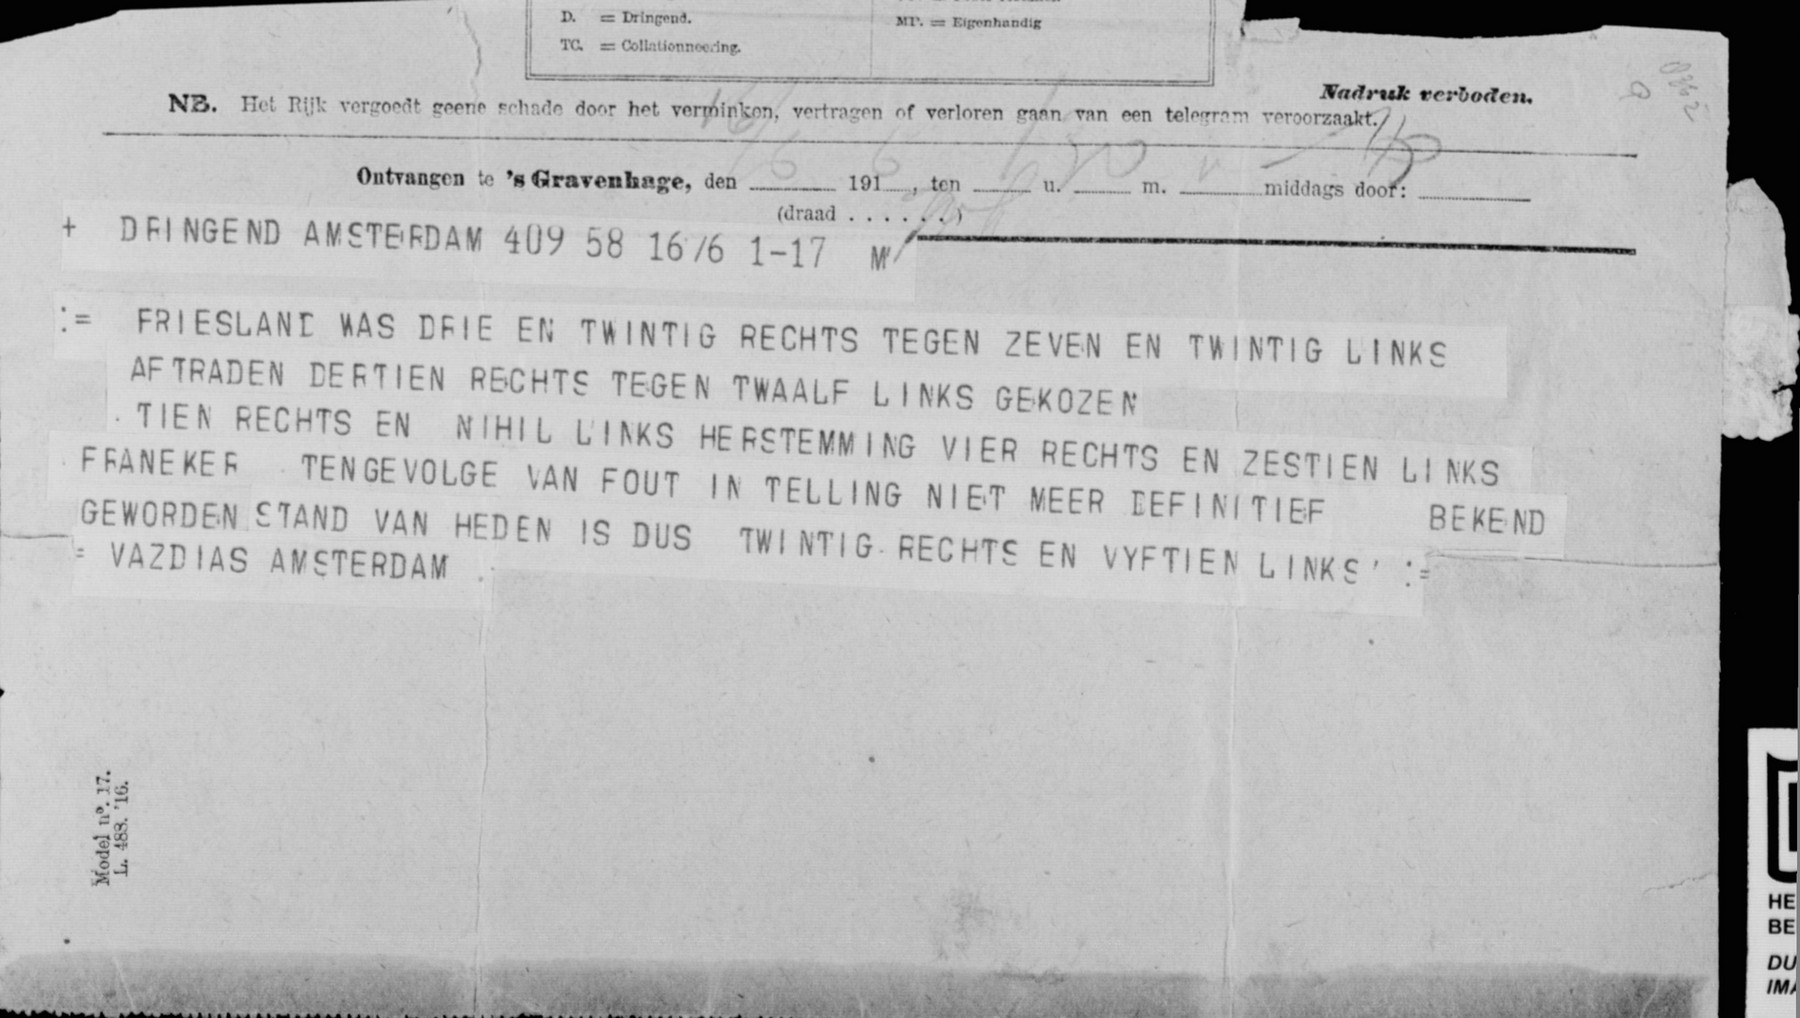 D. = Dringend.
TC. = Collationneering.
MP. = Eigenhandig
Nadruk verboden.
NB. Het Rijk vergoedt geene schade door het verminken, vertragen of verloren gaan van een telegram veroorzaakt.
Ontvangen te 's Gravenhage, den ........ 191...., ten ........ u. ........ m. ........ middags door: ........
(draad . . . . . . )
+ DRINGEND AMSTERDAM 409 58 16/6 1-17 M
:= FRIESLAND WAS DRIE EN TWINTIG RECHTS TEGEN ZEVEN EN TWINTIG LINKS
AFTRADEN DERTIEN RECHTS TEGEN TWAALF LINKS GEKOZEN
TIEN RECHTS EN NIHIL LINKS HERSTEMMING VIER RECHTS EN ZESTIEN LINKS
FRANEKER TENGEVOLGE VAN FOUT IN TELLING NIET MEER DEFINITIEF BEKEND
GEWORDEN STAND VAN HEDEN IS DUS TWINTIG RECHTS EN VYFTIEN LINKS' :=
= VAZDIAS AMSTERDAM
Model n°. 17.
L. 483. '16.
HE
BE
DU
IMA